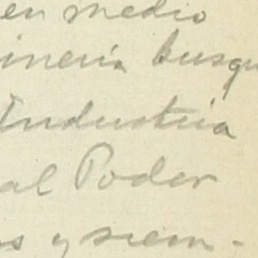 en medio
inería busqu
Industria
al Poder
s y siem-